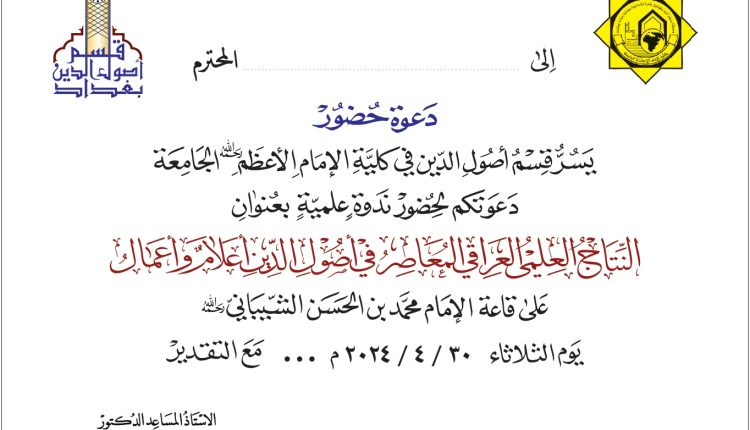 قسم
أصول الدين
بغداد
إلى ........................ المحترم
دَعوة حُضُورْ
يَسُرُّ قِسْمُ أصُول الدّين في كليَّة الإمَام الأعظَم رحمه الله الجَامِعَة
دَعوَتكم لحِضُورْ نَدوةٍ علميّةٍ بعُنوانِ
النِّتَاجُ العِلْمِيُّ العِرَاقيُّ المُعَاصِرُ في أصُولِ الدِّينِ أعلَامٌ وَأعمَالٌ
عَلى قاعة الإمَام محمَّد بن الحَسَن الشَّيبَانيّ رحمه الله
يَوم الثلاثاء ٣٠ / ٤ / ٢٠٢٤ م ... مَعَ التقديرْ
الاستَاذُ المسَاعِد الدّكتورْ